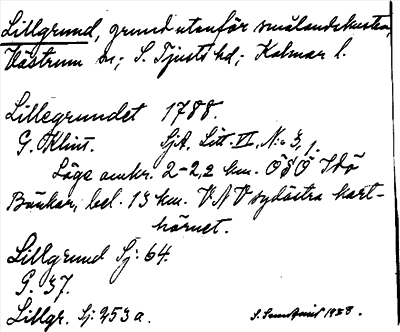 Lillgrund, grund utanför smålandskusten,
Västrum sn; S. Tjusts hd; Kalmar l.
Lillegrundet 1788.
G. Klint. SjA. Litt. VI, N:o 3, 1.
Läge omkr. 2-2,2 km. ÖSÖ Idö
Bänkar, bel. 13 km. VNV sydöstra kart-
hörnet.
Lillgrund Sj: 64.
P. 37.
Lillgr. Sj: 253 a. S. 1933.